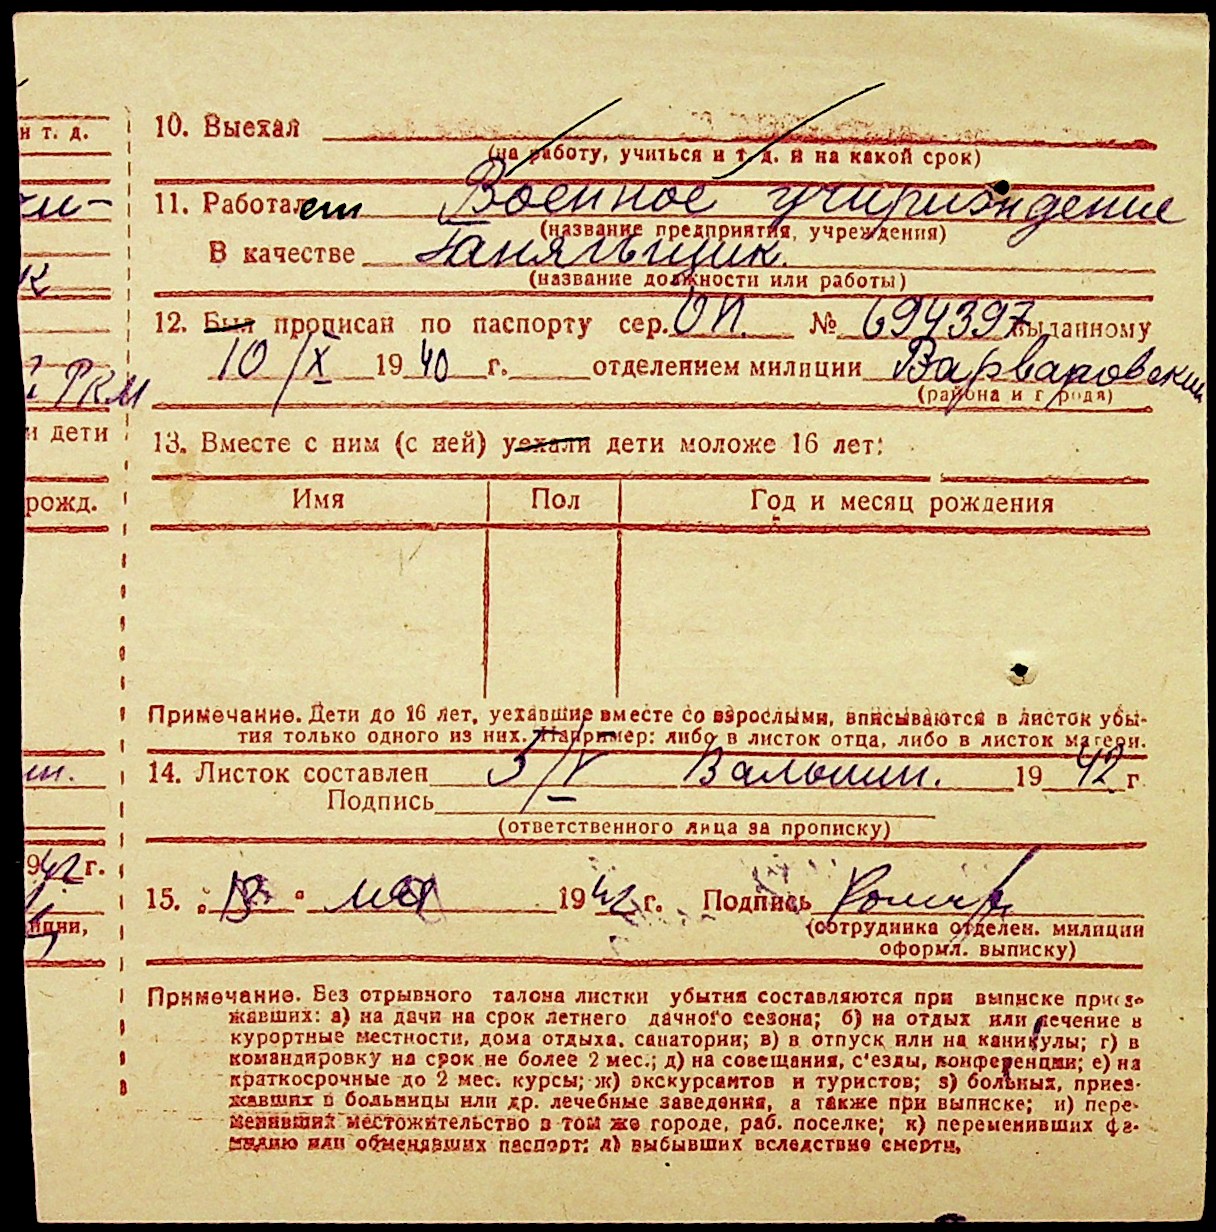 и т. д.
10. Выехал
(на работу, учиться и т. д. и на какой срок)
11. Работает Военное учириждение
(название предприятия, учреждения)
В качестве
(название должности или работы)
12. Был прописан по паспорту сер. ОП. № 694397 выданному
10/IX 1940 г. отделением милиции Варваровский
(района и города)
РКМ
и дети
13. Вместе с ним (с ней) уехали дети моложе 16 лет:
рожд.
Имя Пол Год и месяц рождения
Примечание. Дети до 16 лет, уехавшие вместе со взрослыми, вписываются в листок убы-
тия только одного из них. Например: либо в листок отца, либо в листок матери.
14. Листок составлен 5/V 1942 г
Подпись
(ответственного лица за прописку)
942 г.
15. мая 1942 г. Подпись
(сотрудника отделен. милиции
оформл. выписку)
Примечание. Без отрывного талона листки убытия составляются при выписке приез-
жавших: а) на дачи на срок летнего дачного сезона; б) на отдых или лечение в
курортные местности, дома отдыха, санатории; в) в отпуск или на каникулы; г) в
командировку на срок не более 2 мес.; д) на совещания, с'езды, конференции; е) на
краткосрочные до 2 мес. курсы; ж) экскурсантов и туристов; з) больных, приез-
жавших в больницы или др. лечебные заведения, а также при выписке; и) пере-
менивших местожительство в том же городе, раб. поселке; к) переменивших фа-
милию или обменявших паспорт; л) выбывших вследствие смерти,